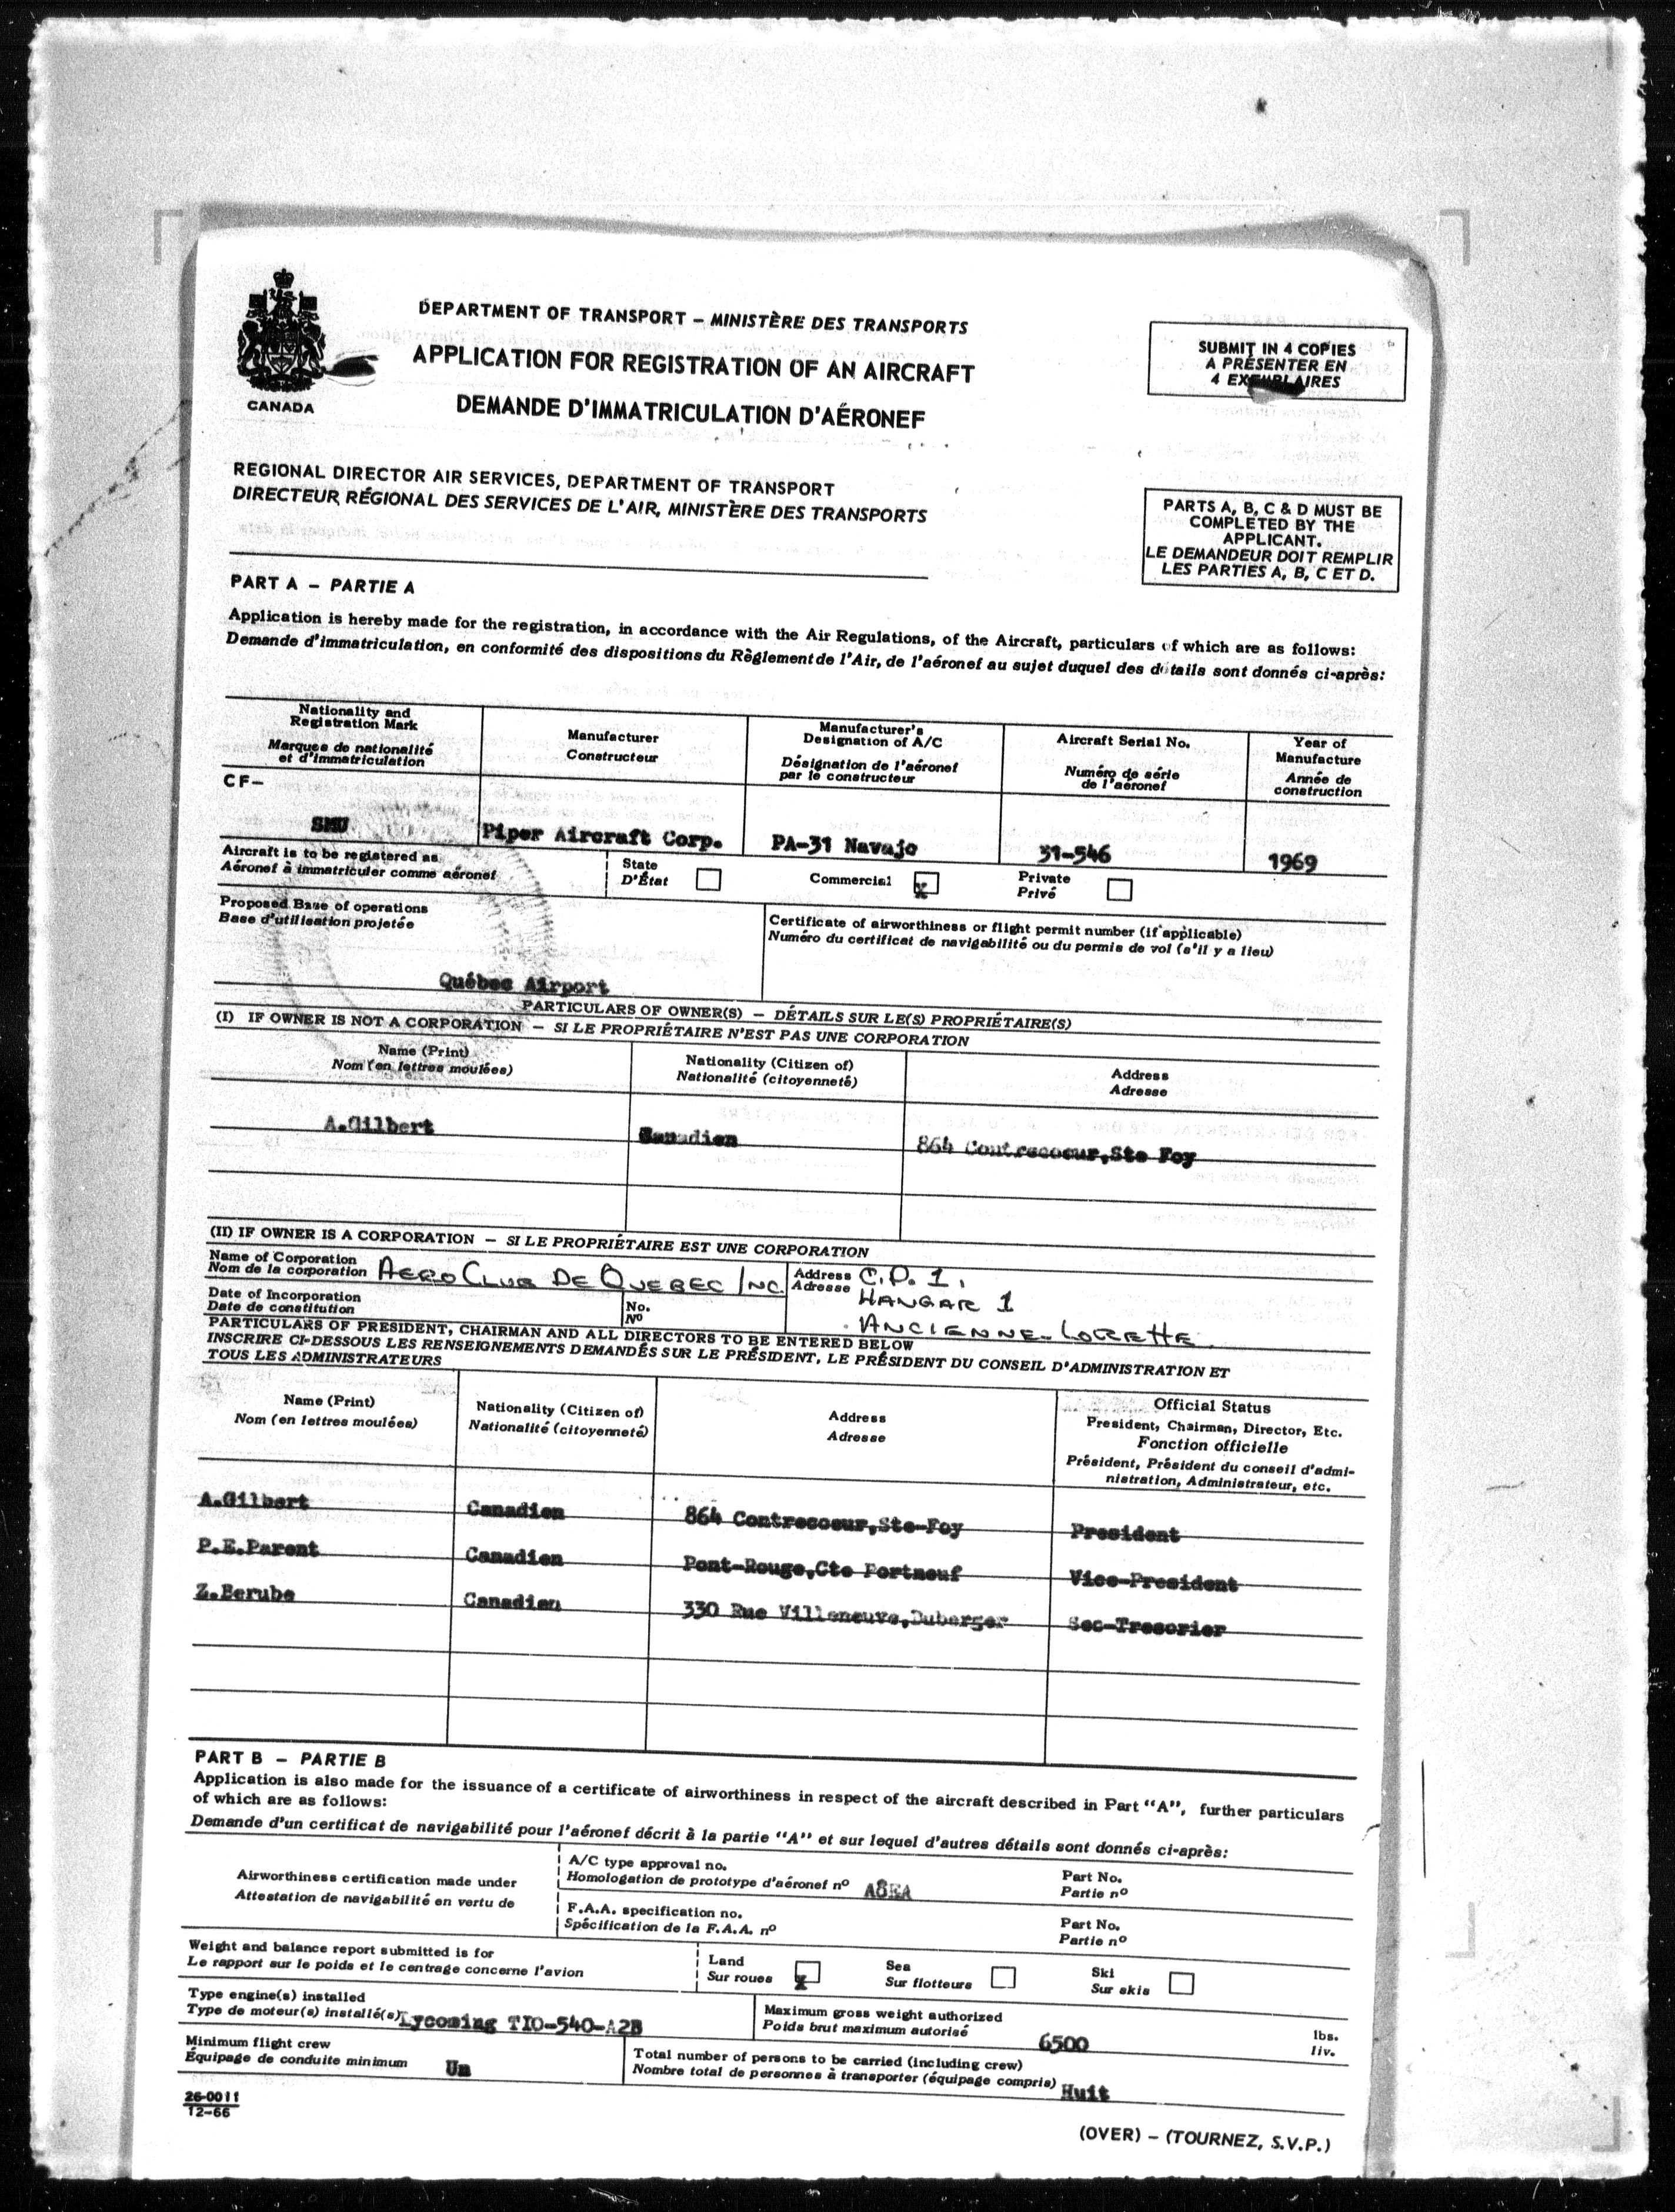 DEPARTMENT OF TRANSPORT – MINISTÈRE DES TRANSPORTS
APPLICATION FOR REGISTRATION OF AN AIRCRAFT
DEMANDE D'IMMATRICULATION D'AÉRONEF
CANADA
SUBMIT IN 4 COPIES
A PRÉSENTER EN
4 EXEMPLAIRES
REGIONAL DIRECTOR AIR SERVICES, DEPARTMENT OF TRANSPORT
DIRECTEUR RÉGIONAL DES SERVICES DE L'AIR, MINISTÈRE DES TRANSPORTS
PARTS A, B, C & D MUST BE
COMPLETED BY THE
APPLICANT.
LE DEMANDEUR DOIT REMPLIR
LES PARTIES A, B, C ET D.
PART A – PARTIE A
Application is hereby made for the registration, in accordance with the Air Regulations, of the Aircraft, particulars of which are as follows:
Demande d'immatriculation, en conformité des dispositions du Règlement de l'Air, de l'aéronef au sujet duquel des détails sont donnés ci-après:
Nationality and
Registration Mark
Marques de nationalité
et d'immatriculation
Manufacturer
Constructeur
Manufacturer's
Designation of A/C
Désignation de l'aéronef
par le constructeur
Aircraft Serial No.
Numéro de série
de l'aéronef
Year of
Manufacture
Année de
construction
CF–
SMU
Piper Aircraft Corp.
PA-31 Navajo
31-546
1969
Aircraft is to be registered as
Aéronef à immatriculer comme aéronef
State
D'État
Commercial
x
Private
Privé
Proposed Base of operations
Base d'utilisation projetée
Québec Airport
Certificate of airworthiness or flight permit number (if applicable)
Numéro du certificat de navigabilité ou du permis de vol (s'il y a lieu)
PARTICULARS OF OWNER(S) – DÉTAILS SUR LE(S) PROPRIÉTAIRE(S)
(I) IF OWNER IS NOT A CORPORATION – SI LE PROPRIÉTAIRE N'EST PAS UNE CORPORATION
Name (Print)
Nom (en lettres moulées)
Nationality (Citizen of)
Nationalité (citoyenneté)
Address
Adresse
A.Gilbert
Canadien
864 Contrecoeur,Ste Foy
(II) IF OWNER IS A CORPORATION – SI LE PROPRIÉTAIRE EST UNE CORPORATION
Name of Corporation
Nom de la corporation
AERO CLUB DE QUEBEC INC.
Address
Adresse
C.P. 1,
HANGAR 1
ANCIENNE-LORETTE
Date of Incorporation
Date de constitution
No.
Nº
PARTICULARS OF PRESIDENT, CHAIRMAN AND ALL DIRECTORS TO BE ENTERED BELOW
INSCRIRE CI-DESSOUS LES RENSEIGNEMENTS DEMANDÉS SUR LE PRÉSIDENT, LE PRÉSIDENT DU CONSEIL D'ADMINISTRATION ET
TOUS LES ADMINISTRATEURS
Name (Print)
Nom (en lettres moulées)
Nationality (Citizen of)
Nationalité (citoyenneté)
Address
Adresse
Official Status
President, Chairman, Director, Etc.
Fonction officielle
Président, Président du conseil d'admi-
nistration, Administrateur, etc.
A.Gilbert Canadien 864 Contrecoeur,Ste-Foy President
P.E.Parent Canadien Pont-Rouge,Cte Portneuf Vice-President
Z.Berube Canadien 330 Rue Villeneuve,Duberger Sec-Tresorier
PART B – PARTIE B
Application is also made for the issuance of a certificate of airworthiness in respect of the aircraft described in Part "A", further particulars
of which are as follows:
Demande d'un certificat de navigabilité pour l'aéronef décrit à la partie "A" et sur lequel d'autres détails sont donnés ci-après:
Airworthiness certification made under
Attestation de navigabilité en vertu de
A/C type approval no.
Homologation de prototype d'aéronef nº A8EA
Part No.
Partie nº
F.A.A. specification no.
Spécification de la F.A.A. nº
Part No.
Partie nº
Weight and balance report submitted is for
Le rapport sur le poids et le centrage concerne l'avion
Land
Sur roues
x
Sea
Sur flotteurs
Ski
Sur skis
Type engine(s) installed
Type de moteur(s) installé(s) Lycoming TIO-540-A2B
Maximum gross weight authorized
Poids brut maximum autorisé
6500
lbs.
liv.
Minimum flight crew
Équipage de conduite minimum Un
Total number of persons to be carried (including crew)
Nombre total de personnes à transporter (équipage compris) Huit
26-0011
12-66
(OVER) – (TOURNEZ, S.V.P.)